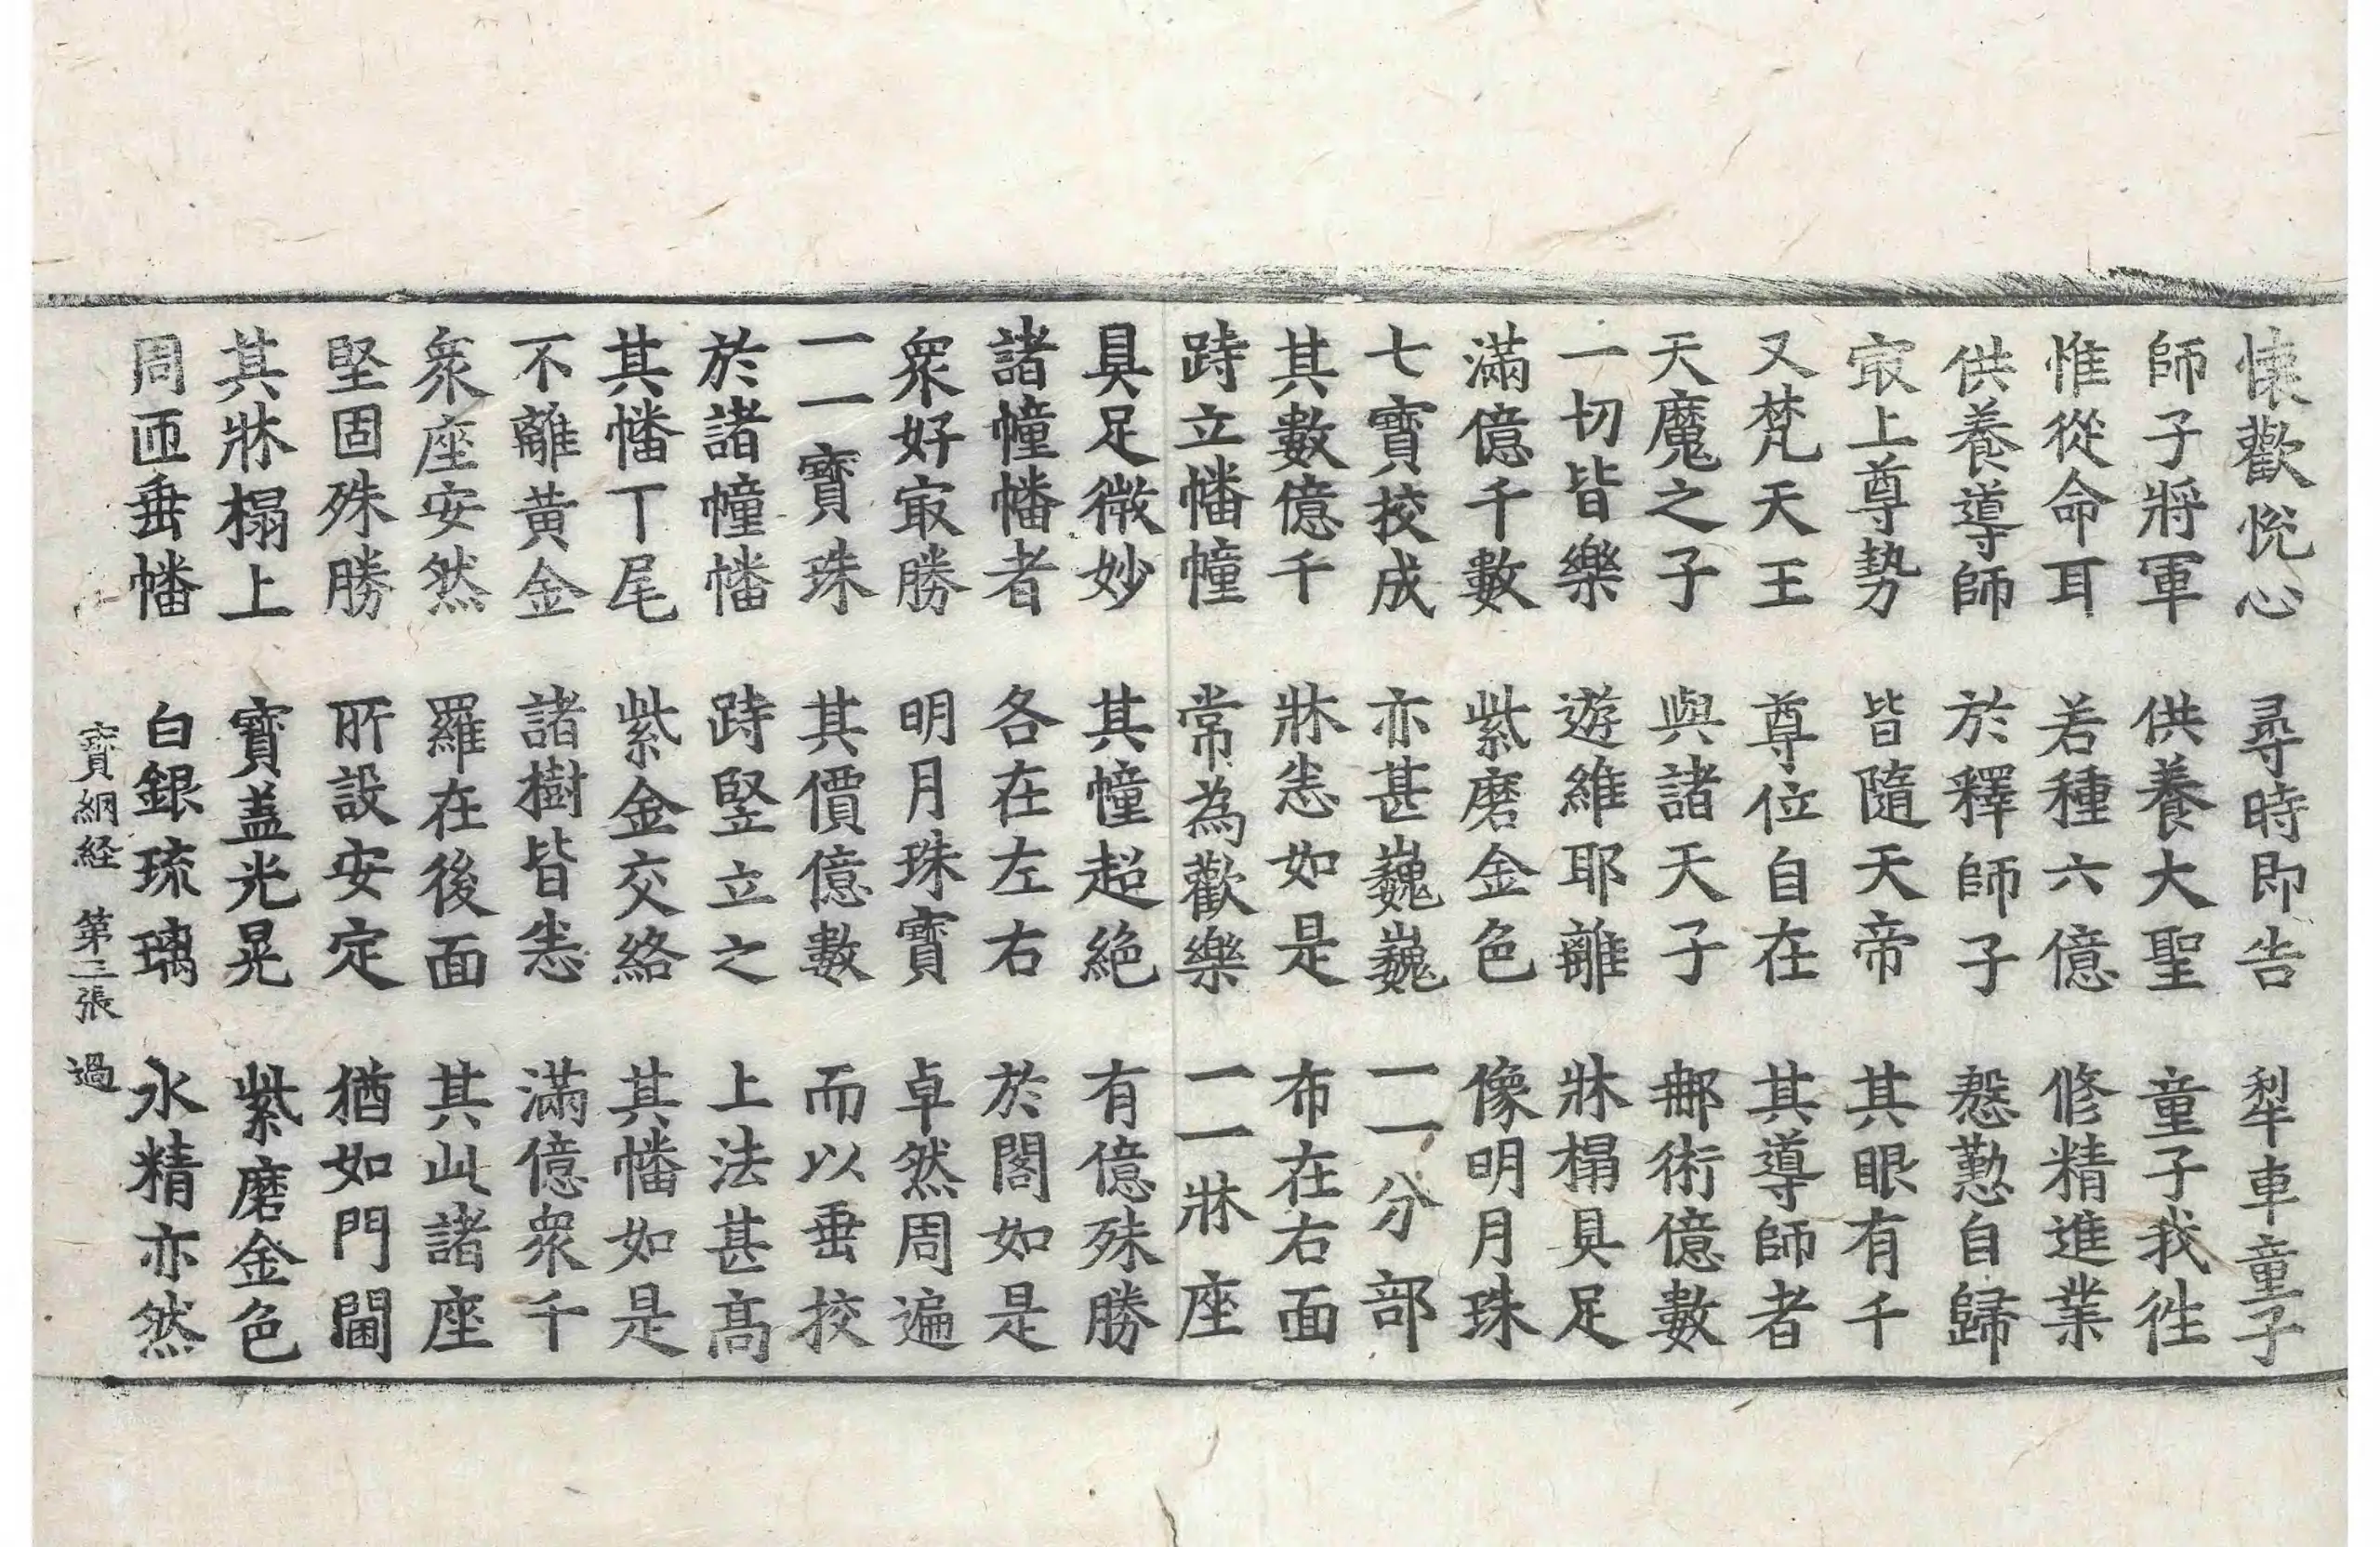 懷歡悅心 尋時即告 犁車童子
師子將軍 供養大聖 童子我往
惟從命耳 若種六億 修精進業
供養導師 於釋師子 慇懃自歸
㝡上尊勢 皆隨天帝 其眼有千
又梵天王 尊位自在 其導師者
天魔之子 與諸天子 𨚗術億數
一切皆樂 遊維耶離 牀榻具足
滿億千數 紫磨金色 像明月珠
七寶挍成 亦甚巍巍 一一分部
其數億千 牀恙如是 布在右面
跱立幡幢 常為歡樂 一一牀座
具足微妙 其幢超絶 有億殊勝
諸幢幡者 各在左右 於閣如是
衆好㝡勝 明月珠寶 卓然周遍
一一寶珠 其價億數 而以垂挍
於諸幢幡 跱竪立之 上法甚髙
其幡丁尾 紫金交絡 其幡如是
不離黃金 諸樹皆恙 滿億衆千
衆座安然 羅在後面 其此諸座
堅固殊勝 所設安定 猶如門閫
其牀榻上 寶盖光晃 紫磨金色
周匝垂幡 白銀琉璃 水精亦然
寶網経 第三張 過